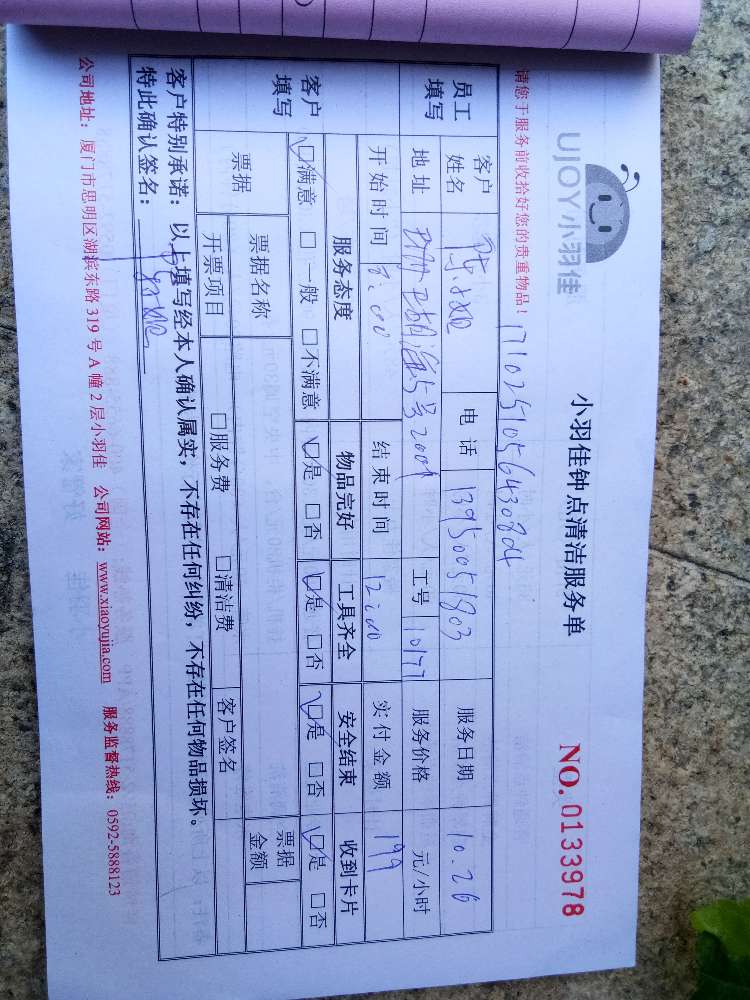 UJOY小羽佳
小羽佳钟点清洁服务单
NO. 0133978
请您于服务前收拾好您的贵重物品!
17102510564308d4
员工填写
客户姓名
电话 13950051803
服务日期 10.26
地址
5号2004
工号 10177
服务价格 元/小时
开始时间 8:00
结束时间 12:00
实付金额 199
客户填写
服务态度 物品完好 工具齐全 安全结束 收到卡片
☑满意 □一般 □不满意 ☑是 □否 ☑是 □否 ☑是 □否 ☑是 □否
票据
票据名称
票据金额
开票项目 □服务费 □清洁费 客户签名
客户特别承诺:以上填写经本人确认属实,不存在任何纠纷,不存在任何物品损坏。
特此确认签名:
公司地址:厦门市思明区湖滨东路 319 号 A 幢 2 层小羽佳 公司网站:www.xiaoyujia.com 服务监督热线:0592-5888123